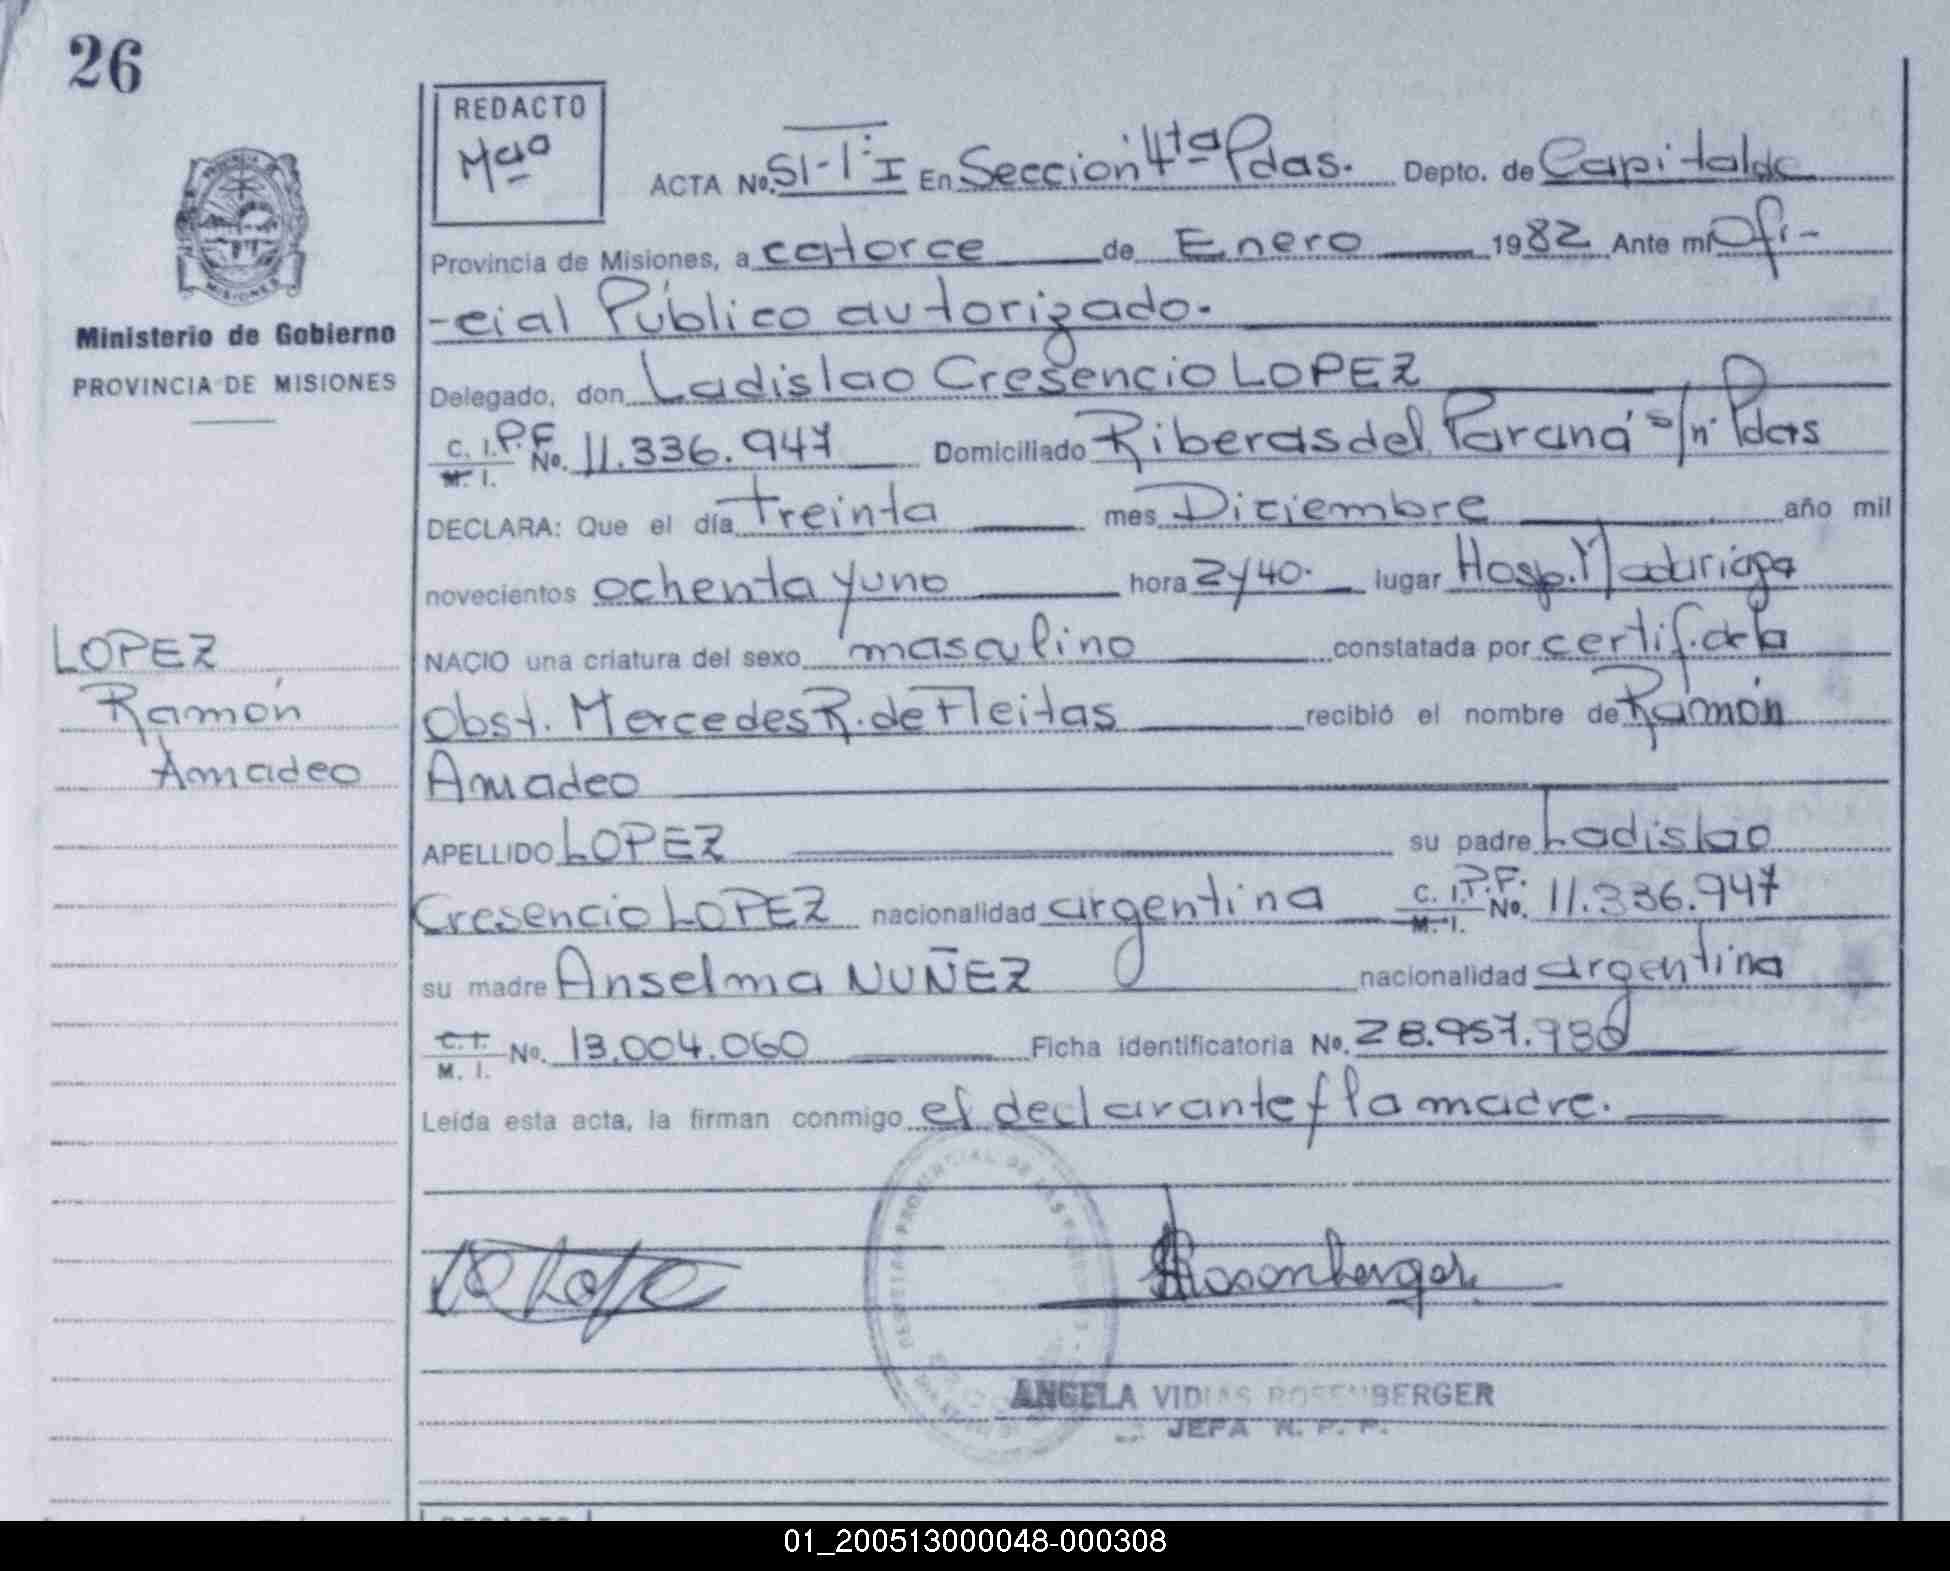 26
REDACTO
Mªa
PROVINCIA DE
MISIONES
Ministerio de Gobierno
PROVINCIA DE MISIONES
ACTA No. 51-Tº I En Sección 4ta Pdas. Depto. de Capital de
Provincia de Misiones, a catorce de Enero 1982 Ante mí Ofi-
-cial Público autorizado.
Delegado, don Ladislao Cresencio LOPEZ
C. I. P.F. M. I. No. 11.336.947 Domiciliado Riberas del Paraná s/nº Pdas
DECLARA: Que el día treinta mes Diciembre año mil
novecientos ochenta y uno hora 2y40. lugar Hosp. Madariaga
NACIO una criatura del sexo masculino constatada por certif. de la
Obst. Mercedes R. de Fleitas recibió el nombre de Ramón
Amadeo
APELLIDO LOPEZ su padre Ladislao
Cresencio LOPEZ nacionalidad argentina C. I. P.F. M. I. No. 11.336.947
su madre Anselma NUÑEZ nacionalidad argentina
C. I. M. I. No. 13.004.060 Ficha identificatoria No. 28.957.980
Leída esta acta, la firman conmigo el declarante y la madre.
LOPEZ
Ramón
Amadeo
Rosenberger
ANGELA VIDIAS ROSENBERGER
JEFA
01_200513000048-000308